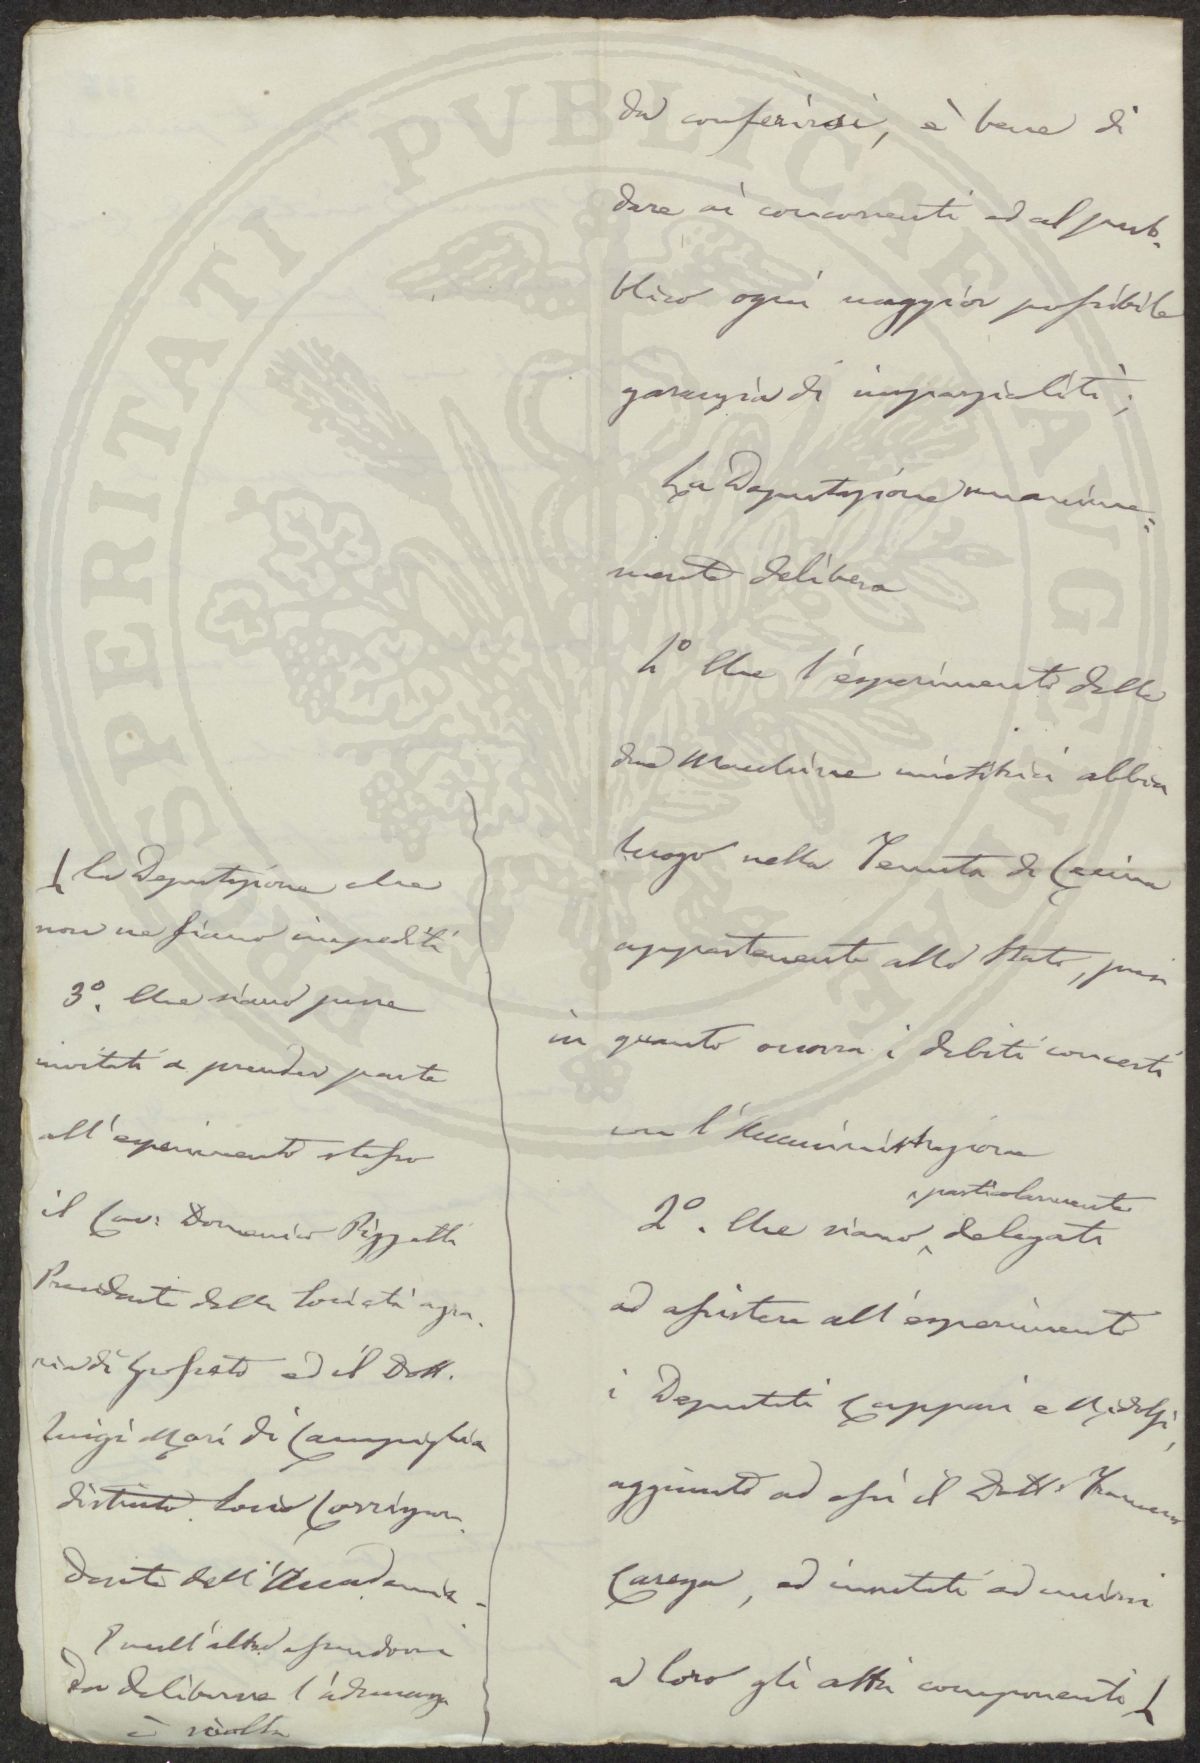 da conferirsi, è bene di
dare ai concorrenti ed al pub-
blico ogni maggior possibile
garanzia di imparzialità;
La Deputazione unanime-
mente delibera
1º Che l'esperimento delle
due Macchine mietitrici abbia
luogo nella Tenuta di Cecina
appartenente allo Stato, presi
in quanto occorra i debiti concerti
con l'Amministrazione
2º. Che siano particolarmente delegati
ad assistere all'esperimento
i Deputati Cappari e Ridolfi,
aggiunto ad essi il Dott. Francesco
Carega, ed invitati ad unirsi
a loro gli altri componenti
la Deputazione che
non ne siano impediti
3º. Che siano pure
invitati a prender parte
all'esperimento stesso
il Cav: Domenico Pizzetti
Presidente della Società agra-
ria di Grosseto ed il Dott.
Luigi Mori di Campiglia
distinto Socio Corrispon-
dente dell'Accademia.
E null'altro essendovi
da deliberare l'adunanza
è sciolta
PROSPERITATI PVBLICAE AVGENDAE